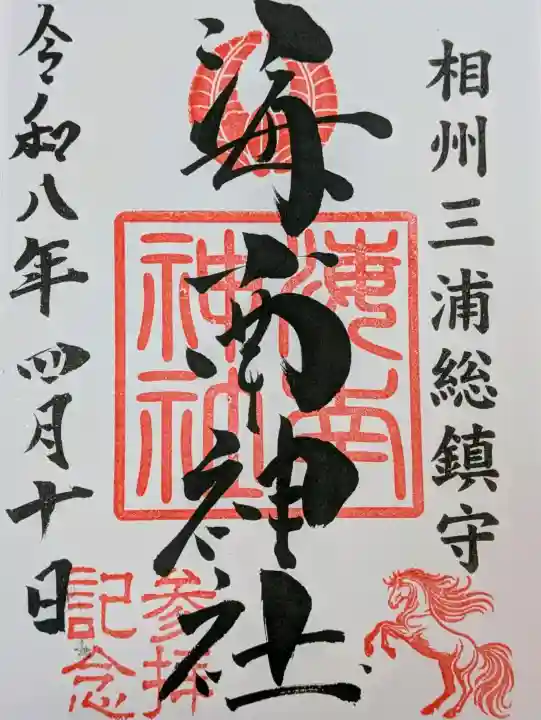 相州三浦総鎮守
海南神社
海南
神社
参拝
記念
令和八年四月十日